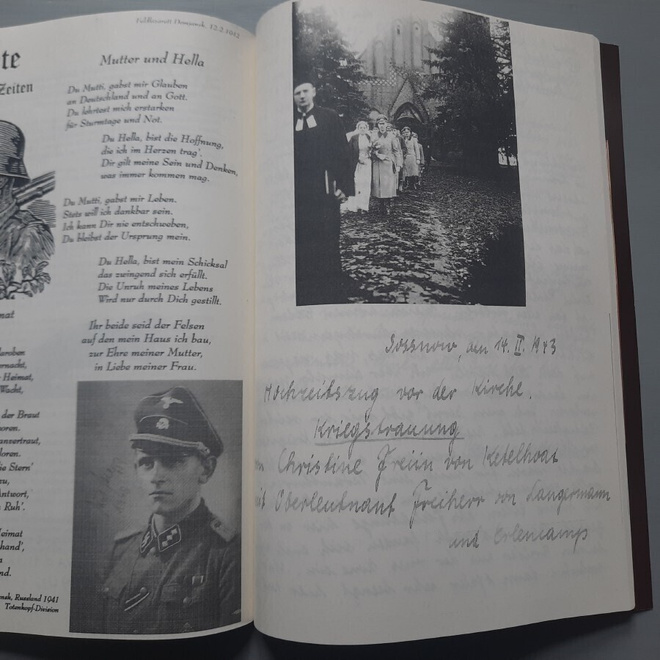 te
Zeiten
mat
Heimat,
Wacht,
der Braut
oren.
anzertraut,
loren.
e Stern'
ntwort,
Ruh'.
Heimat
hand',
nd.
nsk, Russland 1941
Totenkopf-Division
Mutter und Hella
Du Mutti, gabst mir Glauben
an Deutschland und an Gott.
Du lehrtest mich erstarken
für Sturmtage und Not.
Du Hella, bist die Hoffnung,
die ich im Herzen trag'.
Dir gilt meine Sein und Denken,
was immer kommen mag.
Du Mutti, gabst mir Leben.
Stets will ich dankbar sein.
Ich kann Dir nie entschweben,
Du bleibst der Ursprung mein.
Du Hella, bist mein Schicksal
das zwingend sich erfüllt.
Die Unruh meines Lebens
Wird nur durch Dich gestillt.
Ihr beide seid der Felsen
auf den mein Haus ich bau,
zur Ehre meiner Mutter,
in Liebe meiner Frau.
Sossnow, den 14. II. 1943
Hochzeitszug vor der Kirche.
Kriegstrauung
Christine Freiin von Ketelhodt
Oberleutnant Freiherr von Langermann
und Erlencamp